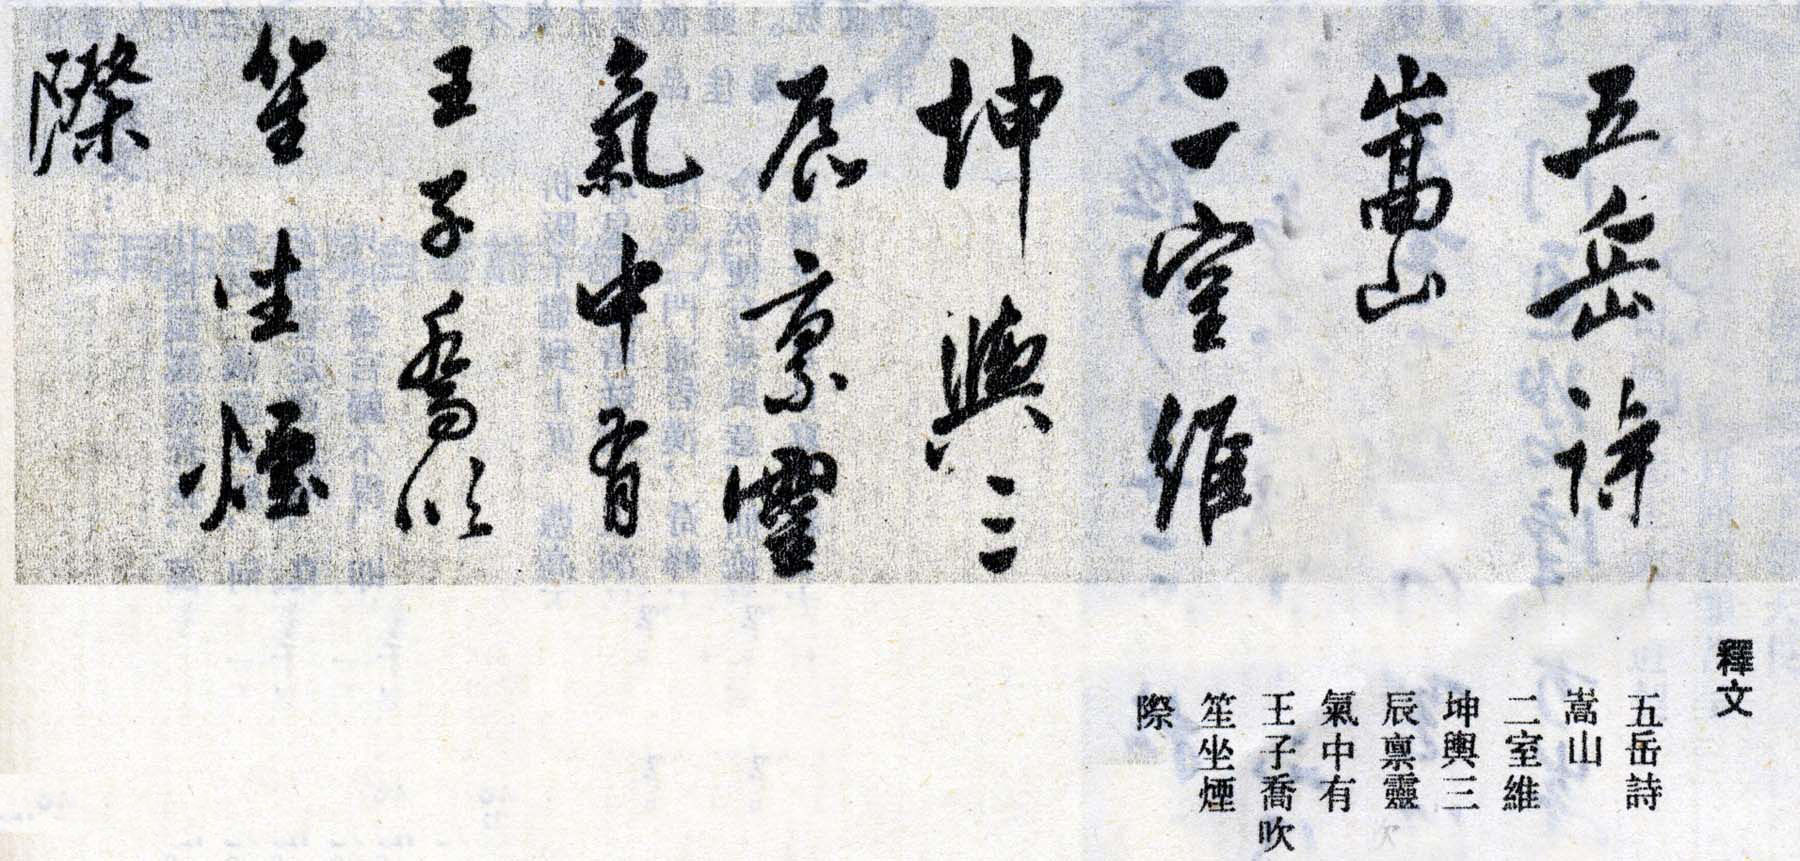 五岳詩
嵩山
二室維
坤輿三
辰稟靈
氣中有
王子喬吹
笙坐煙
際
釋文
五岳詩
嵩山
二室維
坤輿三
辰稟靈
氣中有
王子喬吹
笙坐煙
際